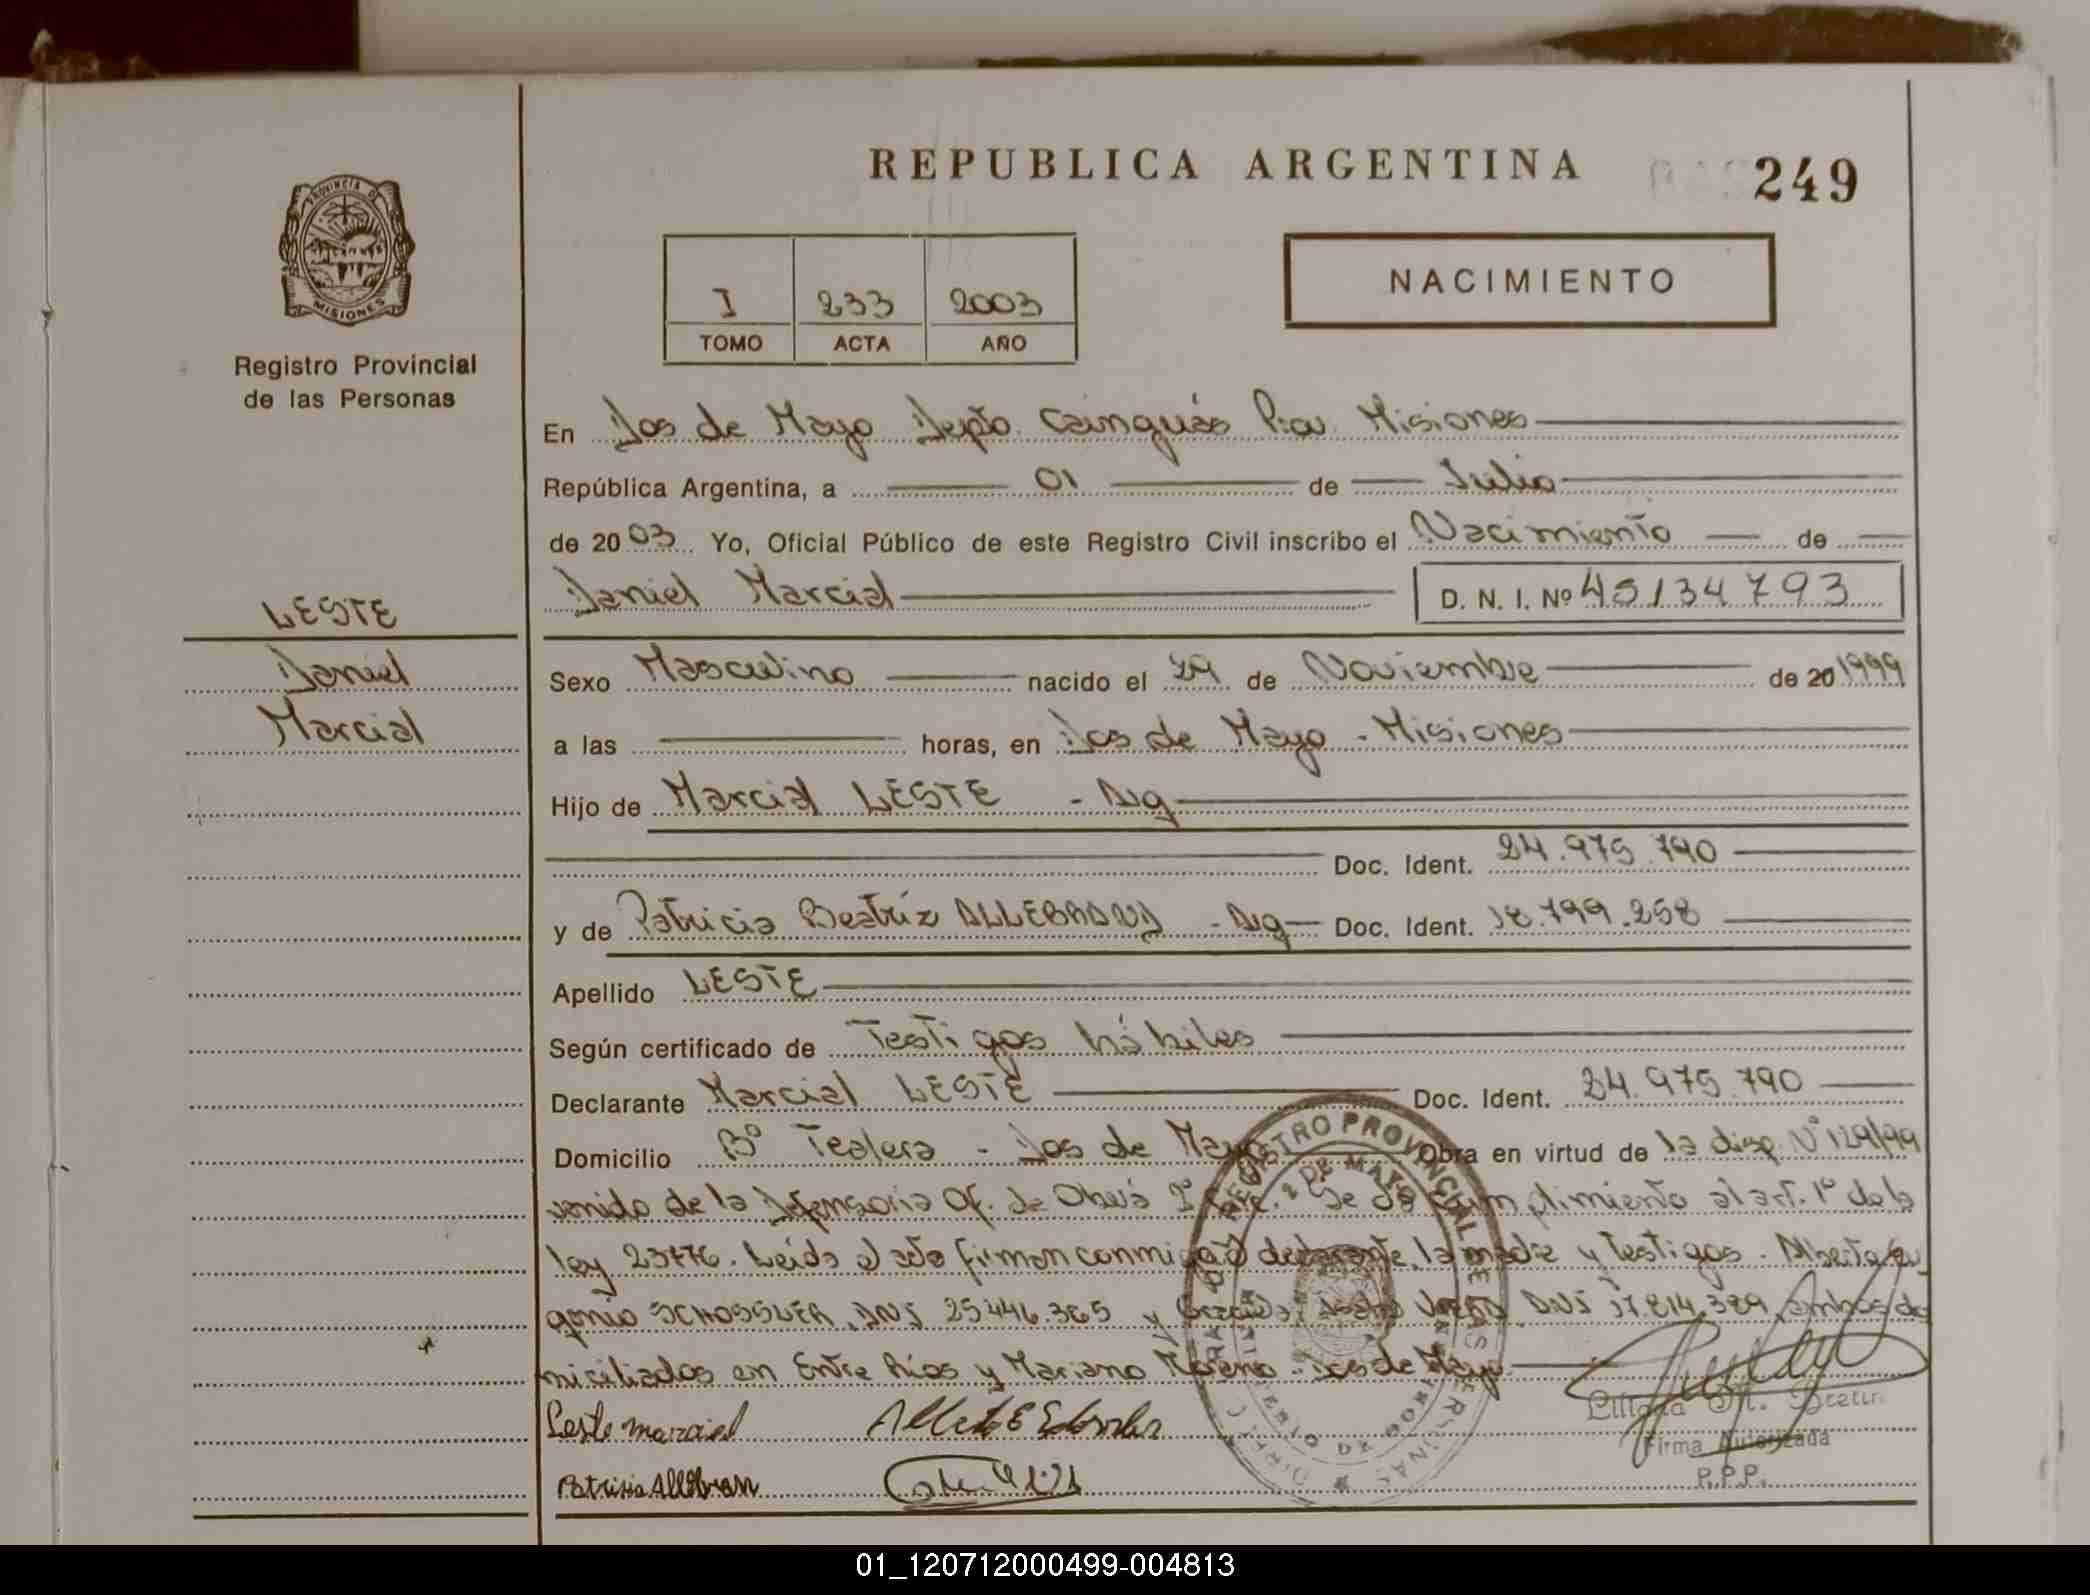 REPUBLICA ARGENTINA
249
PROVINCIA DE
MISIONES
Registro Provincial
de las Personas
I 233 2003
TOMO ACTA AÑO
NACIMIENTO
En Dos de Mayo Depto. Cainguás Pcia. Misiones
República Argentina, a 01 de Julio
de 2003 Yo, Oficial Público de este Registro Civil inscribo el Nacimiento de
Daniel Marcial D. N. I. Nº 45134793
LESTE
Daniel
Marcial
Sexo Masculino nacido el 29 de Noviembre de 20 1999
a las horas, en Dos de Mayo - Misiones
Hijo de Marcial LESTE - Arg
Doc. Ident. 24.975.790
y de Patricia Beatríz ALLEBRAND - Arg Doc. Ident. 18.799.258
Apellido LESTE
Según certificado de Testigos hábiles
Declarante Marcial LESTE Doc. Ident. 24.975.790
Domicilio Bº Tealera - Dos de Mayo Obra en virtud de la disp. Nº 129/99
venido de la Defensoria Of. de Oberá Se da cumplimiento al art. 1º de la
ley 23776. Leída el acta firman conmigo el declarante, la madre y testigos. Alberto Eu
genio SCHOSSLER, DNI 25.446.365 y DNI 17.814.389, ambos do
miciliados en Entre Ríos y Mariano Moreno - Dos de Mayo
Leste marciel
Patrisia Allebran
REGISTRO PROVINCIAL DE LAS PERSONAS
2 DE MAYO
MINISTERIO DE GOBIERNO
Liliana M.
Firma Autorizada
R.P.P.
01_120712000499-004813